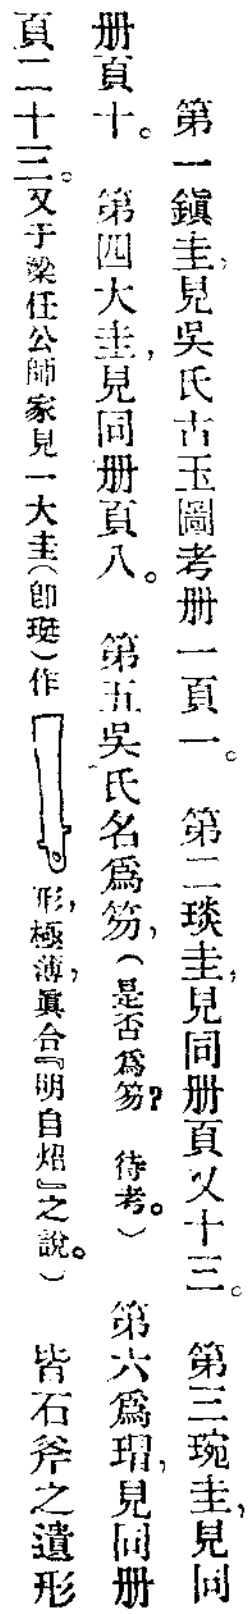 第一鎭圭，見吳氏古玉圖考册一頁一。　第二琰圭，見同册頁又十三。　第三琬圭，見同
册頁十。　第四大圭，見同册頁八。　第五吳氏名爲笏，（是否爲笏？　待考。）　第六爲瑁，見同册
頁二十三。又于梁任公師家見一大圭（卽珽）作形，極薄，眞合『明自炤』之說。）　皆石斧之遺形